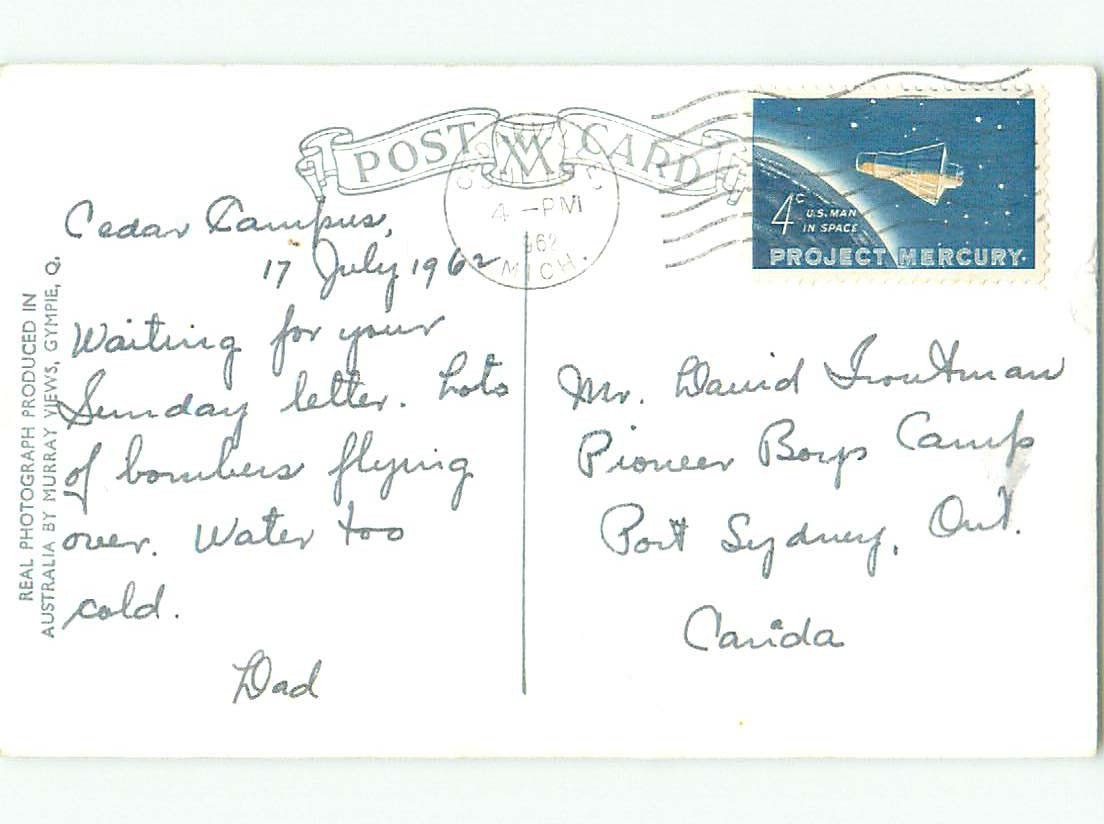 POST CARD
4 - PM
1962
MICH.
4c U.S. MAN
IN SPACE
PROJECT MERCURY
Cedar Campus,
17 July 1962
Waiting for your
Sunday letter. Lots
of bombers flying
over. Water too
cold.
Dad
Mr. David Troutman
Pioneer Boys Camp
Port Sydney, Ont.
Canida
REAL PHOTOGRAPH PRODUCED IN
AUSTRALIA BY MURRAY VIEWS, GYMPIE, Q.